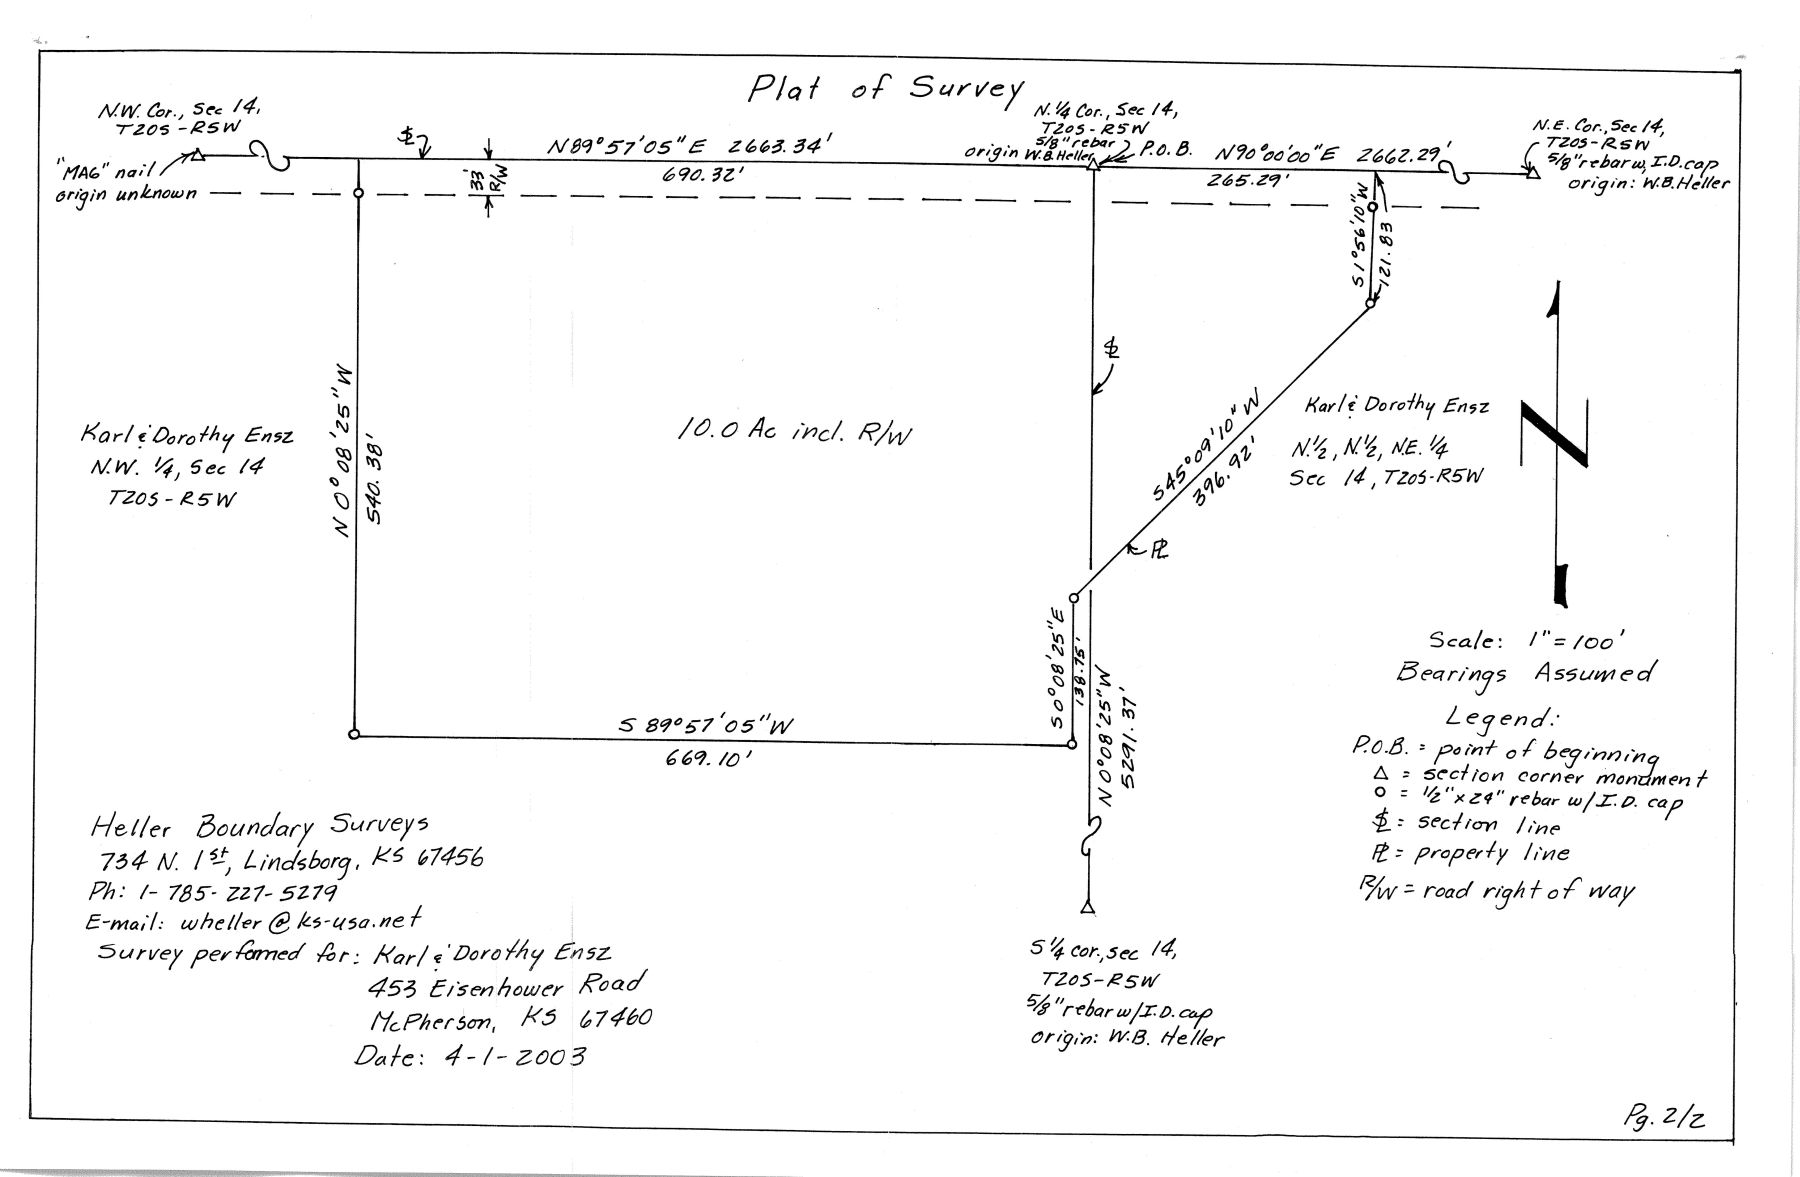 Plat of Survey
N.W. Cor., Sec 14,
T20S-R5W
"MAG" nail
origin unknown
N89°57'05"E 2663.34'
690.32'
33'
R/W
N.¼ Cor., Sec 14,
T20S-R5W
5/8" rebar
origin W.B. Heller
P.O.B.
N90°00'00"E 2662.29'
265.29'
N.E. Cor., Sec 14,
T20S-R5W
5/8" rebar w/ I.D. cap
origin: W.B. Heller
S1°56'10"W
121.83
N0°08'25"W
540.38'
Karl & Dorothy Ensz
N.W. ¼, Sec 14
T20S-R5W
10.0 Ac incl. R/W
S45°09'10"W
396.92'
Karl & Dorothy Ensz
N.½, N.½, N.E. ¼
Sec 14, T20S-R5W
N
S0°08'25"E
138.75'
N0°08'25"W
5291.37'
S 89°57'05"W
669.10'
Scale: 1"=100'
Bearings Assumed
Legend:
P.O.B. = point of beginning
△ = section corner monument
○ = ½"x24" rebar w/ I.D. cap
SL = section line
PL = property line
R/W = road right of way
Heller Boundary Surveys
734 N. 1st, Lindsborg, KS 67456
Ph: 1-785-227-5279
E-mail: wheller@ks-usa.net
Survey performed for: Karl & Dorothy Ensz
453 Eisenhower Road
McPherson, KS 67460
Date: 4-1-2003
S¼ cor., sec 14,
T20S-R5W
5/8" rebar w/ I.D. cap
origin: W.B. Heller
Pg. 2/2